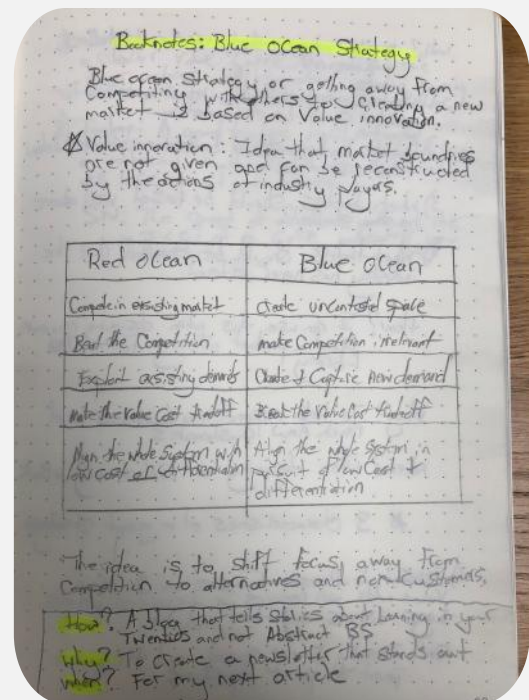 Booknotes: Blue Ocean Strategy
Blue ocean strategy or getting away from
Competing with others to Creating a new
market is based on Value innovation.
Value innovation: Idea that market boundries
are not given and can be reconstructed
by the actions of industry players.
Red Ocean Blue Ocean
Compete in existing market create uncontested space
Beat the Competition make Competition irrelevant
Exploit demands Create & Capture new demand
Make the Value Cost tradeoff Break the Value Cost tradeoff
Align the whole System with Align the whole System in
low Cost or differentiation pursuit of low Cost &
differentiation
The idea is to shift focus, away from
Competition to alternatives and non Customers.
How? A blog that tells stories about Learning in your
Twenties and not Abstract BS
why? To create a newsletter that stands out
when? For my next article